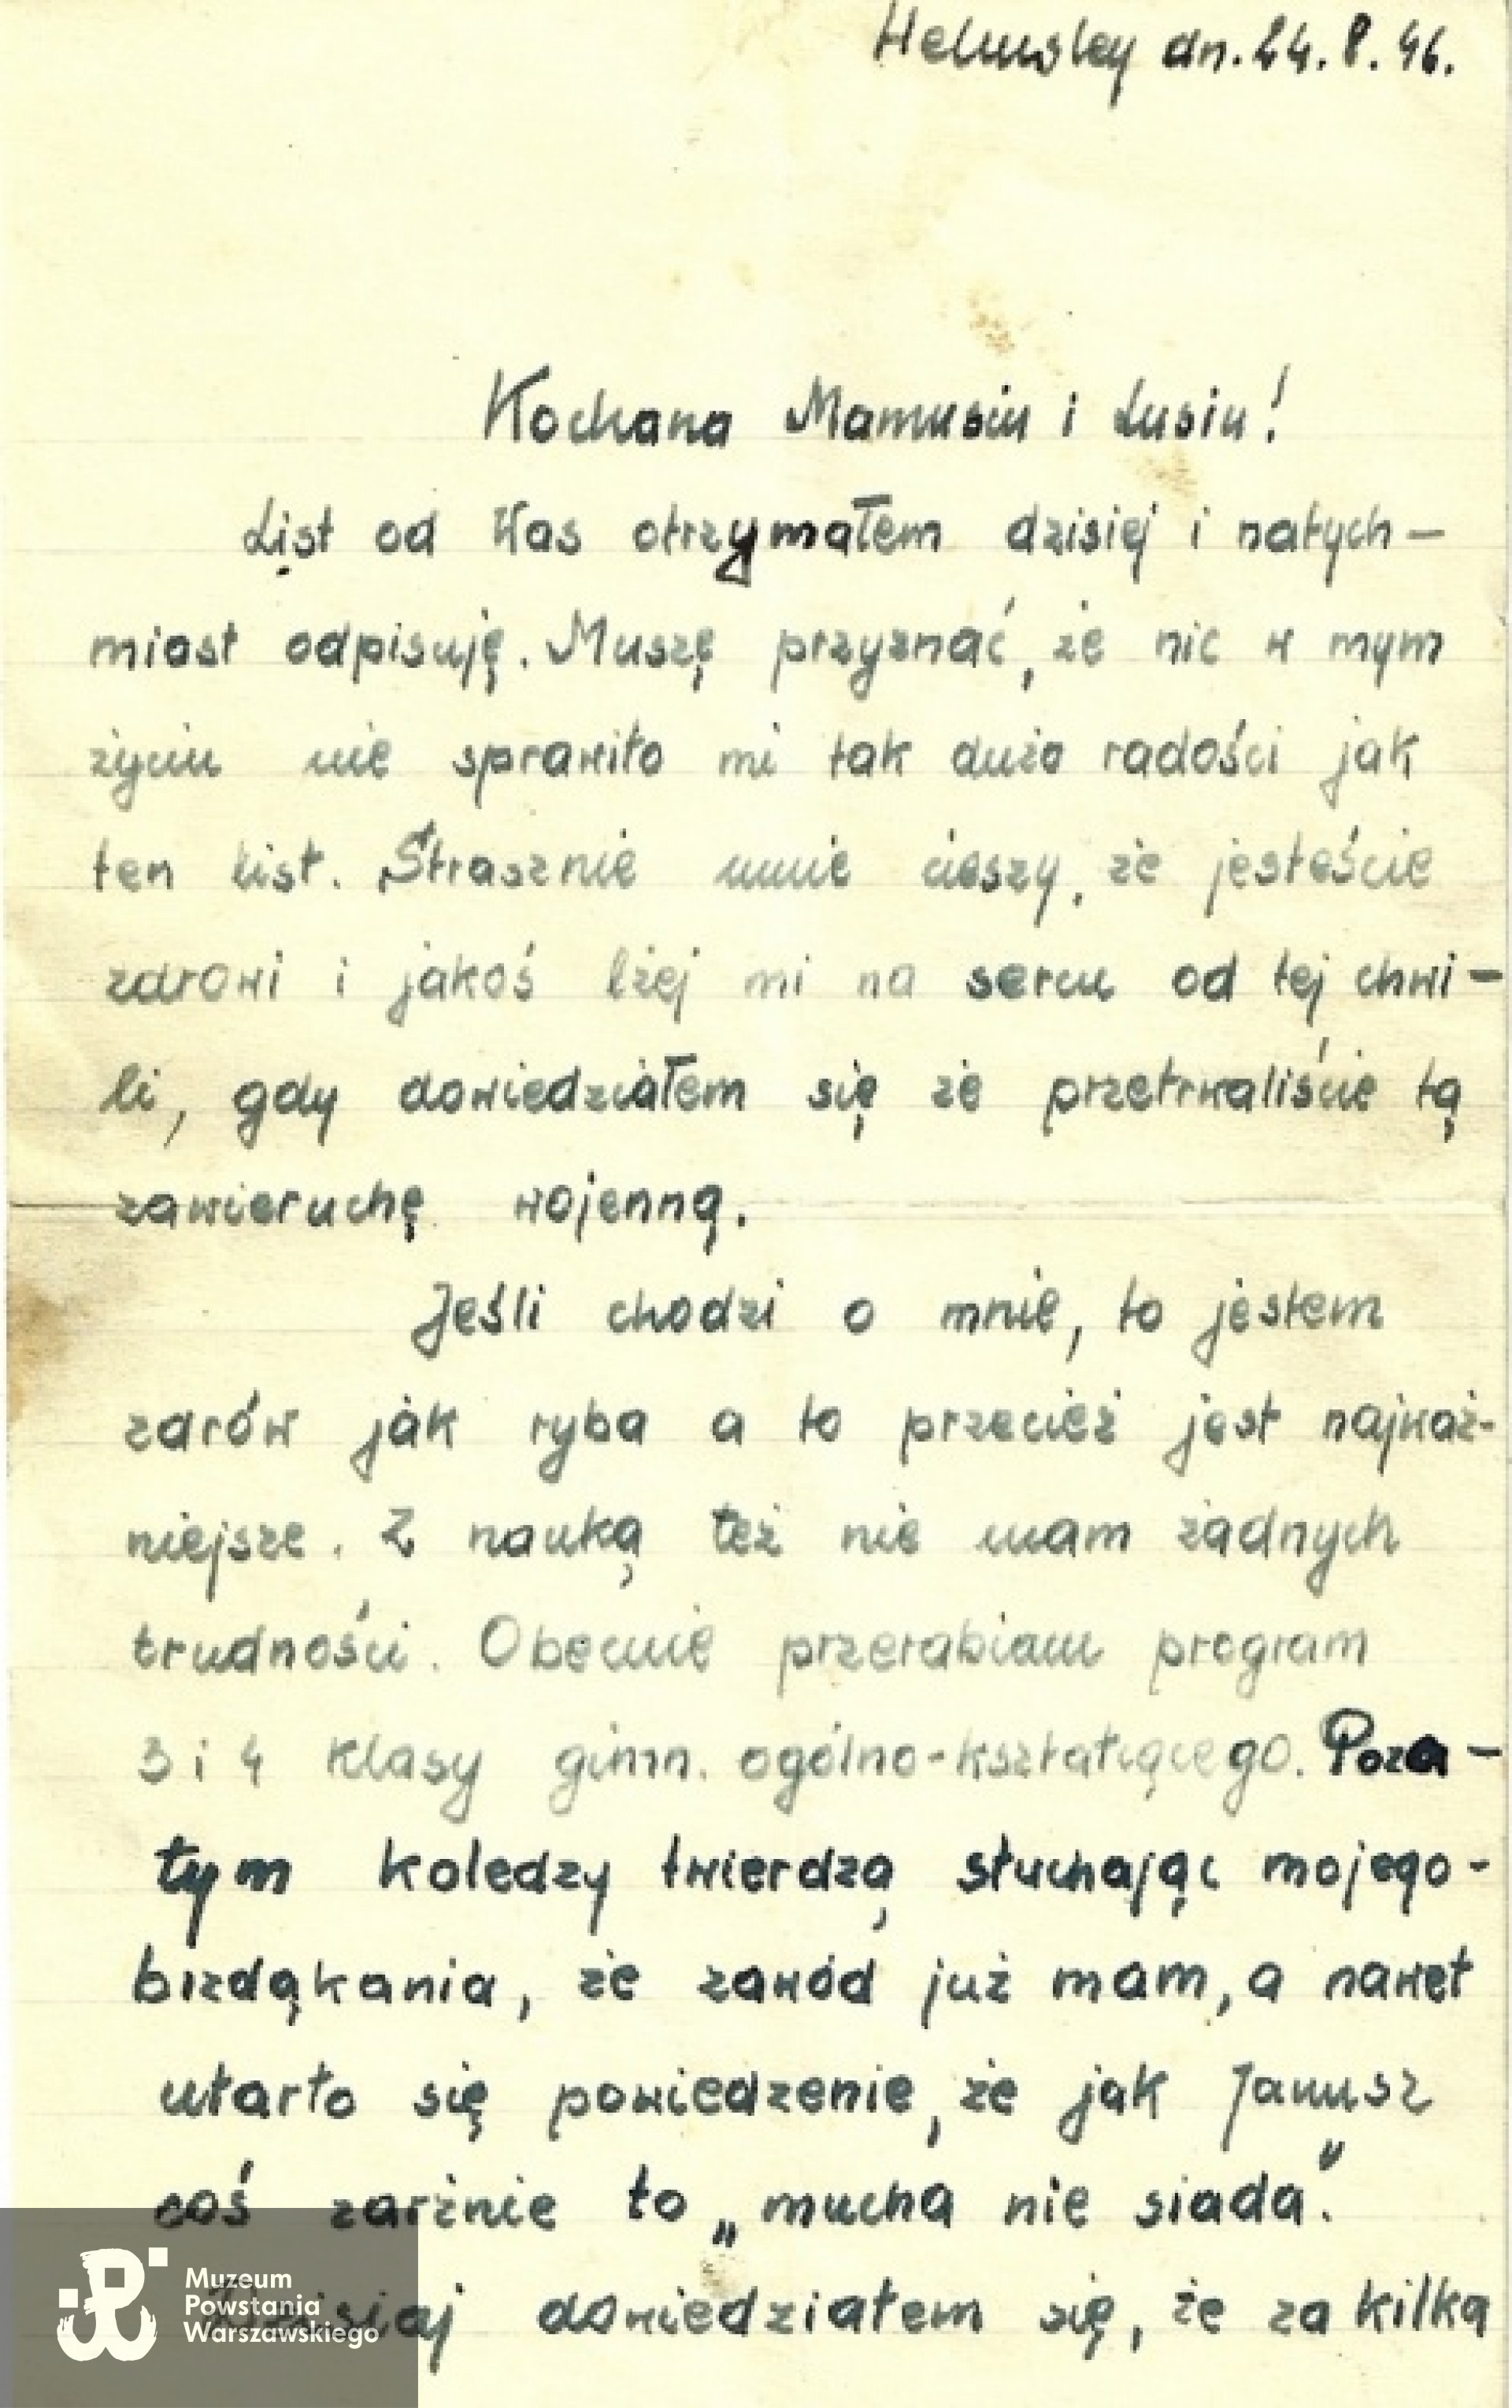 Helmsley dn. 24. 8. 46.
Kochana Mamusiu i Lusiu!
List od Was otrzymałem dzisiej i natych-
miast odpisuję. Muszę przyznać, że nic w mym
życiu nie sprawiło mi tak dużo radości jak
ten list. Strasznie mnie cieszy, że jesteście
zdrowi i jakoś lżej mi na sercu od tej chwi-
li, gdy dowiedziałem się że przetrwaliście tą
zawieruchę wojenną.
Jeśli chodzi o mnie, to jestem
zdrów jak ryba a to przecież jest najważ-
niejsze. Z nauką też nie mam żadnych
trudności. Obecnie przerabiam program
3 i 4 klasy gimn. ogólno-kształcącego. Poza-
tym koledzy twierdzą słuchając mojego-
brzdąkania, że zawód już mam, a nawet
utarło się powiedzenie, że jak Janusz
coś zarżnie to „mucha nie siada."
Dzisiaj dowiedziałem się, że za kilka
Muzeum
Powstania
Warszawskiego